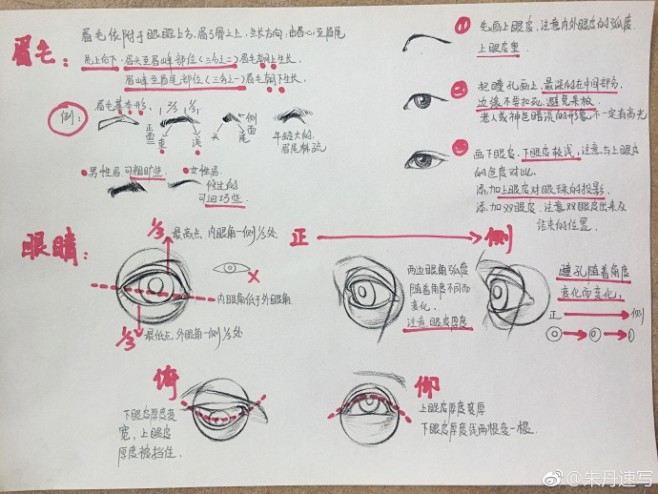 眉毛：
眉毛依附于眼眶上方，眉弓骨之上，生长方向，由眉心至眉尾
先上向下，眉头至眉峰部位（三分之二）眉毛朝上生长，
眉峰至眉尾部位（三分之一）眉毛朝下生长．
例：
眉毛基本形，
2/3
1/3
正面
侧面
重
浅
头
尾
年龄大的
眉尾斜疏
男性眉，可粗旷些．
女性眉，
修过的
可细巧些
一
先画上眼皮，注意内外眼皮的弧度
上眼皮重
二
把瞳孔画上，最深的在中间部分，
边缘不要扣死，避免呆板
老人或神色暗淡的形象，不一定有高光
三
画下眼皮，下眼皮较浅，注意与上眼皮
的色度对比．
添加上眼皮对眼球的投影，
添加双眼皮，注意双眼皮出来及
结束的位置．
眼睛：
1/3
最高点，内眼角一侧1/3处
内眼角低于外眼角
1/3
最低点，外眼角一侧1/3处
正
侧
两边眼角弧度
随着角度不同而
变化．
注意眼皮厚度
瞳孔随着角度
变化而变化，
正
侧
俯
下眼皮厚度变
宽，上眼皮
厚度被挡住．
仰
上眼皮厚度变厚
下眼皮厚度线两根变一根．
@朱丹速写